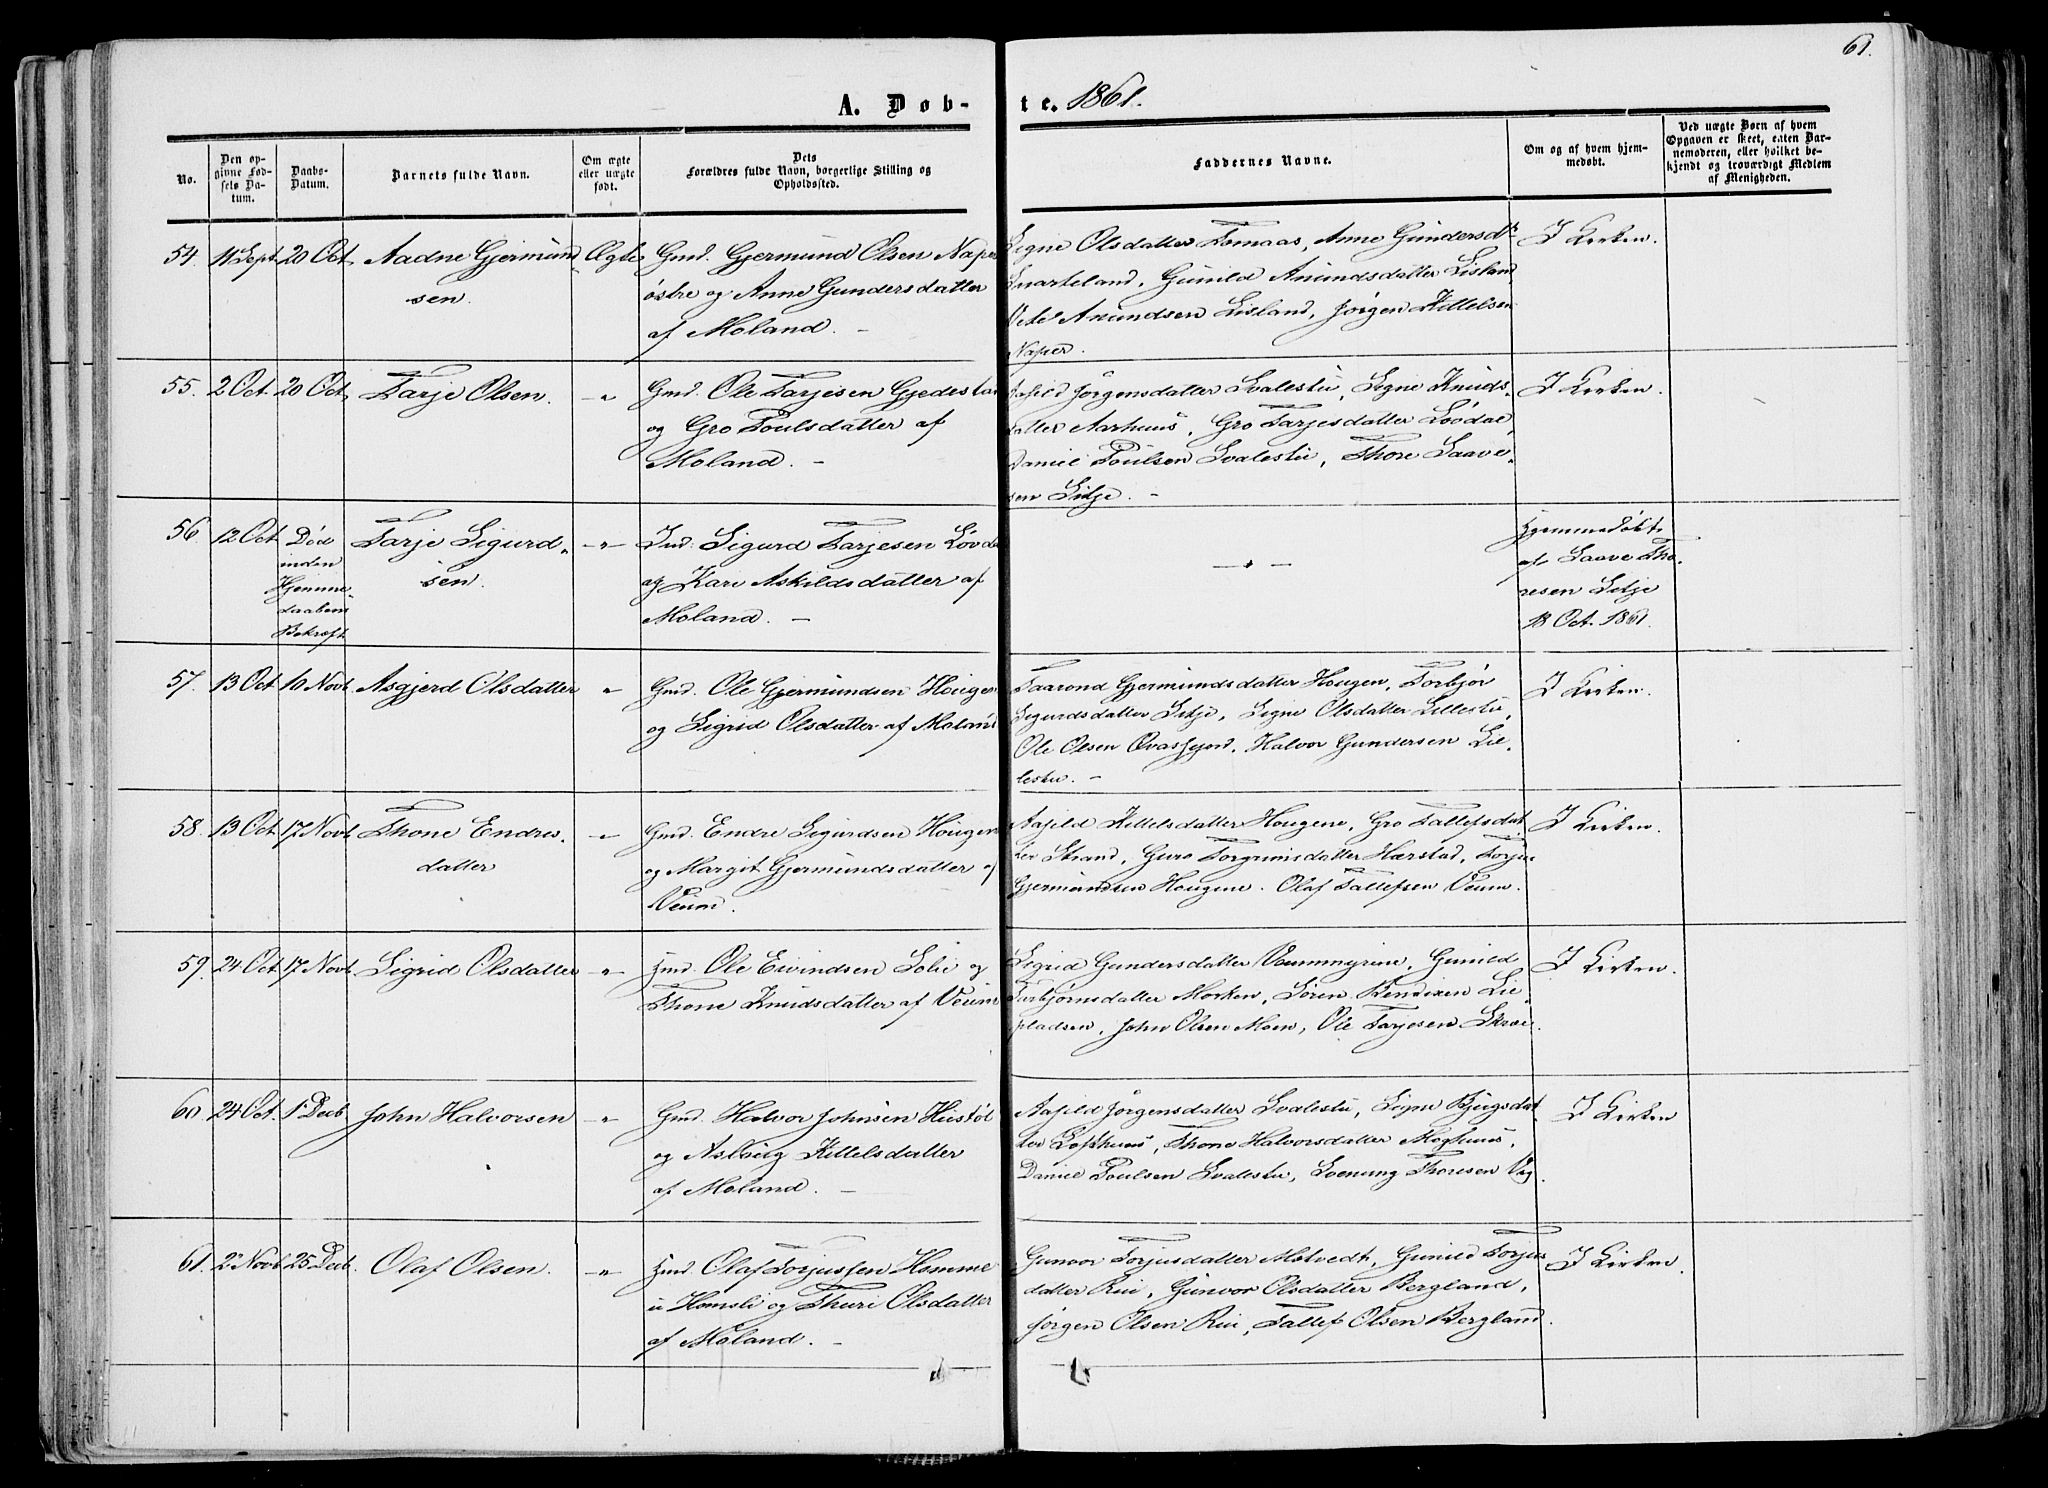 61.
A. Døb-te. 1861.
No.
Den op-
givne Fød-
sels Da-
tum.
Daabs-
Datum.
Barnets fulde Navn.
Om ægte
eller uægte
født.
Dets
Forældres fulde Navn, borgerlige Stilling og
Opholdssted.
Faddernes Navne.
Om og af hvem hjem-
medøbt.
Ved uægte Børn af hvem
Opgaven er skeet, enten Bar-
nemoderen, eller hvilket be-
kjendt og troværdigt Medlem
af Menigheden.
54. 11 Sept 20 Oct. Aadne Gjermund
sen.
Ægte
Gmd. Gjermund Olsen Naper
östre og Anne Gundersdatter
af Moland. –
Signe Olsdatter Tomaas, Anne Gundersdr
Svarteland, Gunild Anundsdatter Lisland,
Anundsen Lisland, Jörgen Kittelsen
Naper.
I Kirken.
55. 2 Oct. 20 Oct. Tarje Olsen. –"
Gmd. Ole Tarjesen Gjedestad
og Gro Poulsdatter af
Moland. –
Aasild Jörgensdatter Svalestu, Signe Knuds-
datter Aarhuus, Gro Tarjesdatter Lövdal,
Daniel Poulsen Svalestu, Thore Saave-
sen Sitje. –
I Kirken.
56. 12 Oct. Död
inden
Hjemme-
daabens
Bekræft.
Tarje Sigurd-
sen.
–"–
Ind. Sigurd Tarjesen Lövdal
og Kari Askildsdatter af
Moland. –
–"–
Hjemmedöbt
af Saave Tho-
resen Sitje
18 Oct. 1861.
57. 13 Oct. 10 Novb. Asgjerd Olsdatter "
Gmd. Ole Gjermundsen Hougen
og Sigrid Olsdatter af Moland
Taarond Gjermundsdatter Hougen, Torbjör
Sigurdsdatter Sitje, Signe Olsdatter Lillestu,
Ole Olsen Ovasgjerd, Halvor Gundersen Lil-
lestu. –
I Kirken.
58. 13 Oct. 17 Novb. Thone Endres-
datter
"
Gmd. Endre Sigurdsen Hougen
og Margit Gjermundsdatter af
Veum.
Aasild Kittelsdatter Hougene, Gro Tallefsdat
ter Strand, Guro Torgrimsdatter Hærstad, Torju
Gjermundsen Hougene. Olaf Tallefsen Veum.
I Kirken.
59. 24 Oct. 17 Novb. Sigrid Olsdatter –"
Hmd. Ole Eivindsen Solie og
Thone Knudsdatter af Veum
Sigrid Gundersdatter Veummyrene, Gunild
Torbjörnsdatter Morken, Sören Bendixen Lie-
pladsen, John Olsen Moen, Ole Tarjesen Skree.
I Kirken.
60. 24 Oct. 1 Decb. John Halvorsen –"
Gmd. Halvor Johnsen Hustöl
og Asloug Kittelsdatter
af Moland. –
Aasild Jörgensdatter Svalestu, Signe Björgsdat
ter Lofthuus, Thone Halvorsdatter Moghuus,
Daniel Poulsen Svalestu, Svenung Thoresen Vaa.
I Kirken
61. 2 Novb 25 Decb. Olaf Olsen. –"
Hmd. Olaf Torjussen Homme
u Homsli og Thuri Olsdatter
af Moland. –
Gunvor Torjusdatter Motvedt, Gunild Torjus
datter Rui, Gunvor Olsdatter Bergland,
Jörgen Olsen Rui, Tallef Olsen Bergland.
I Kirken.